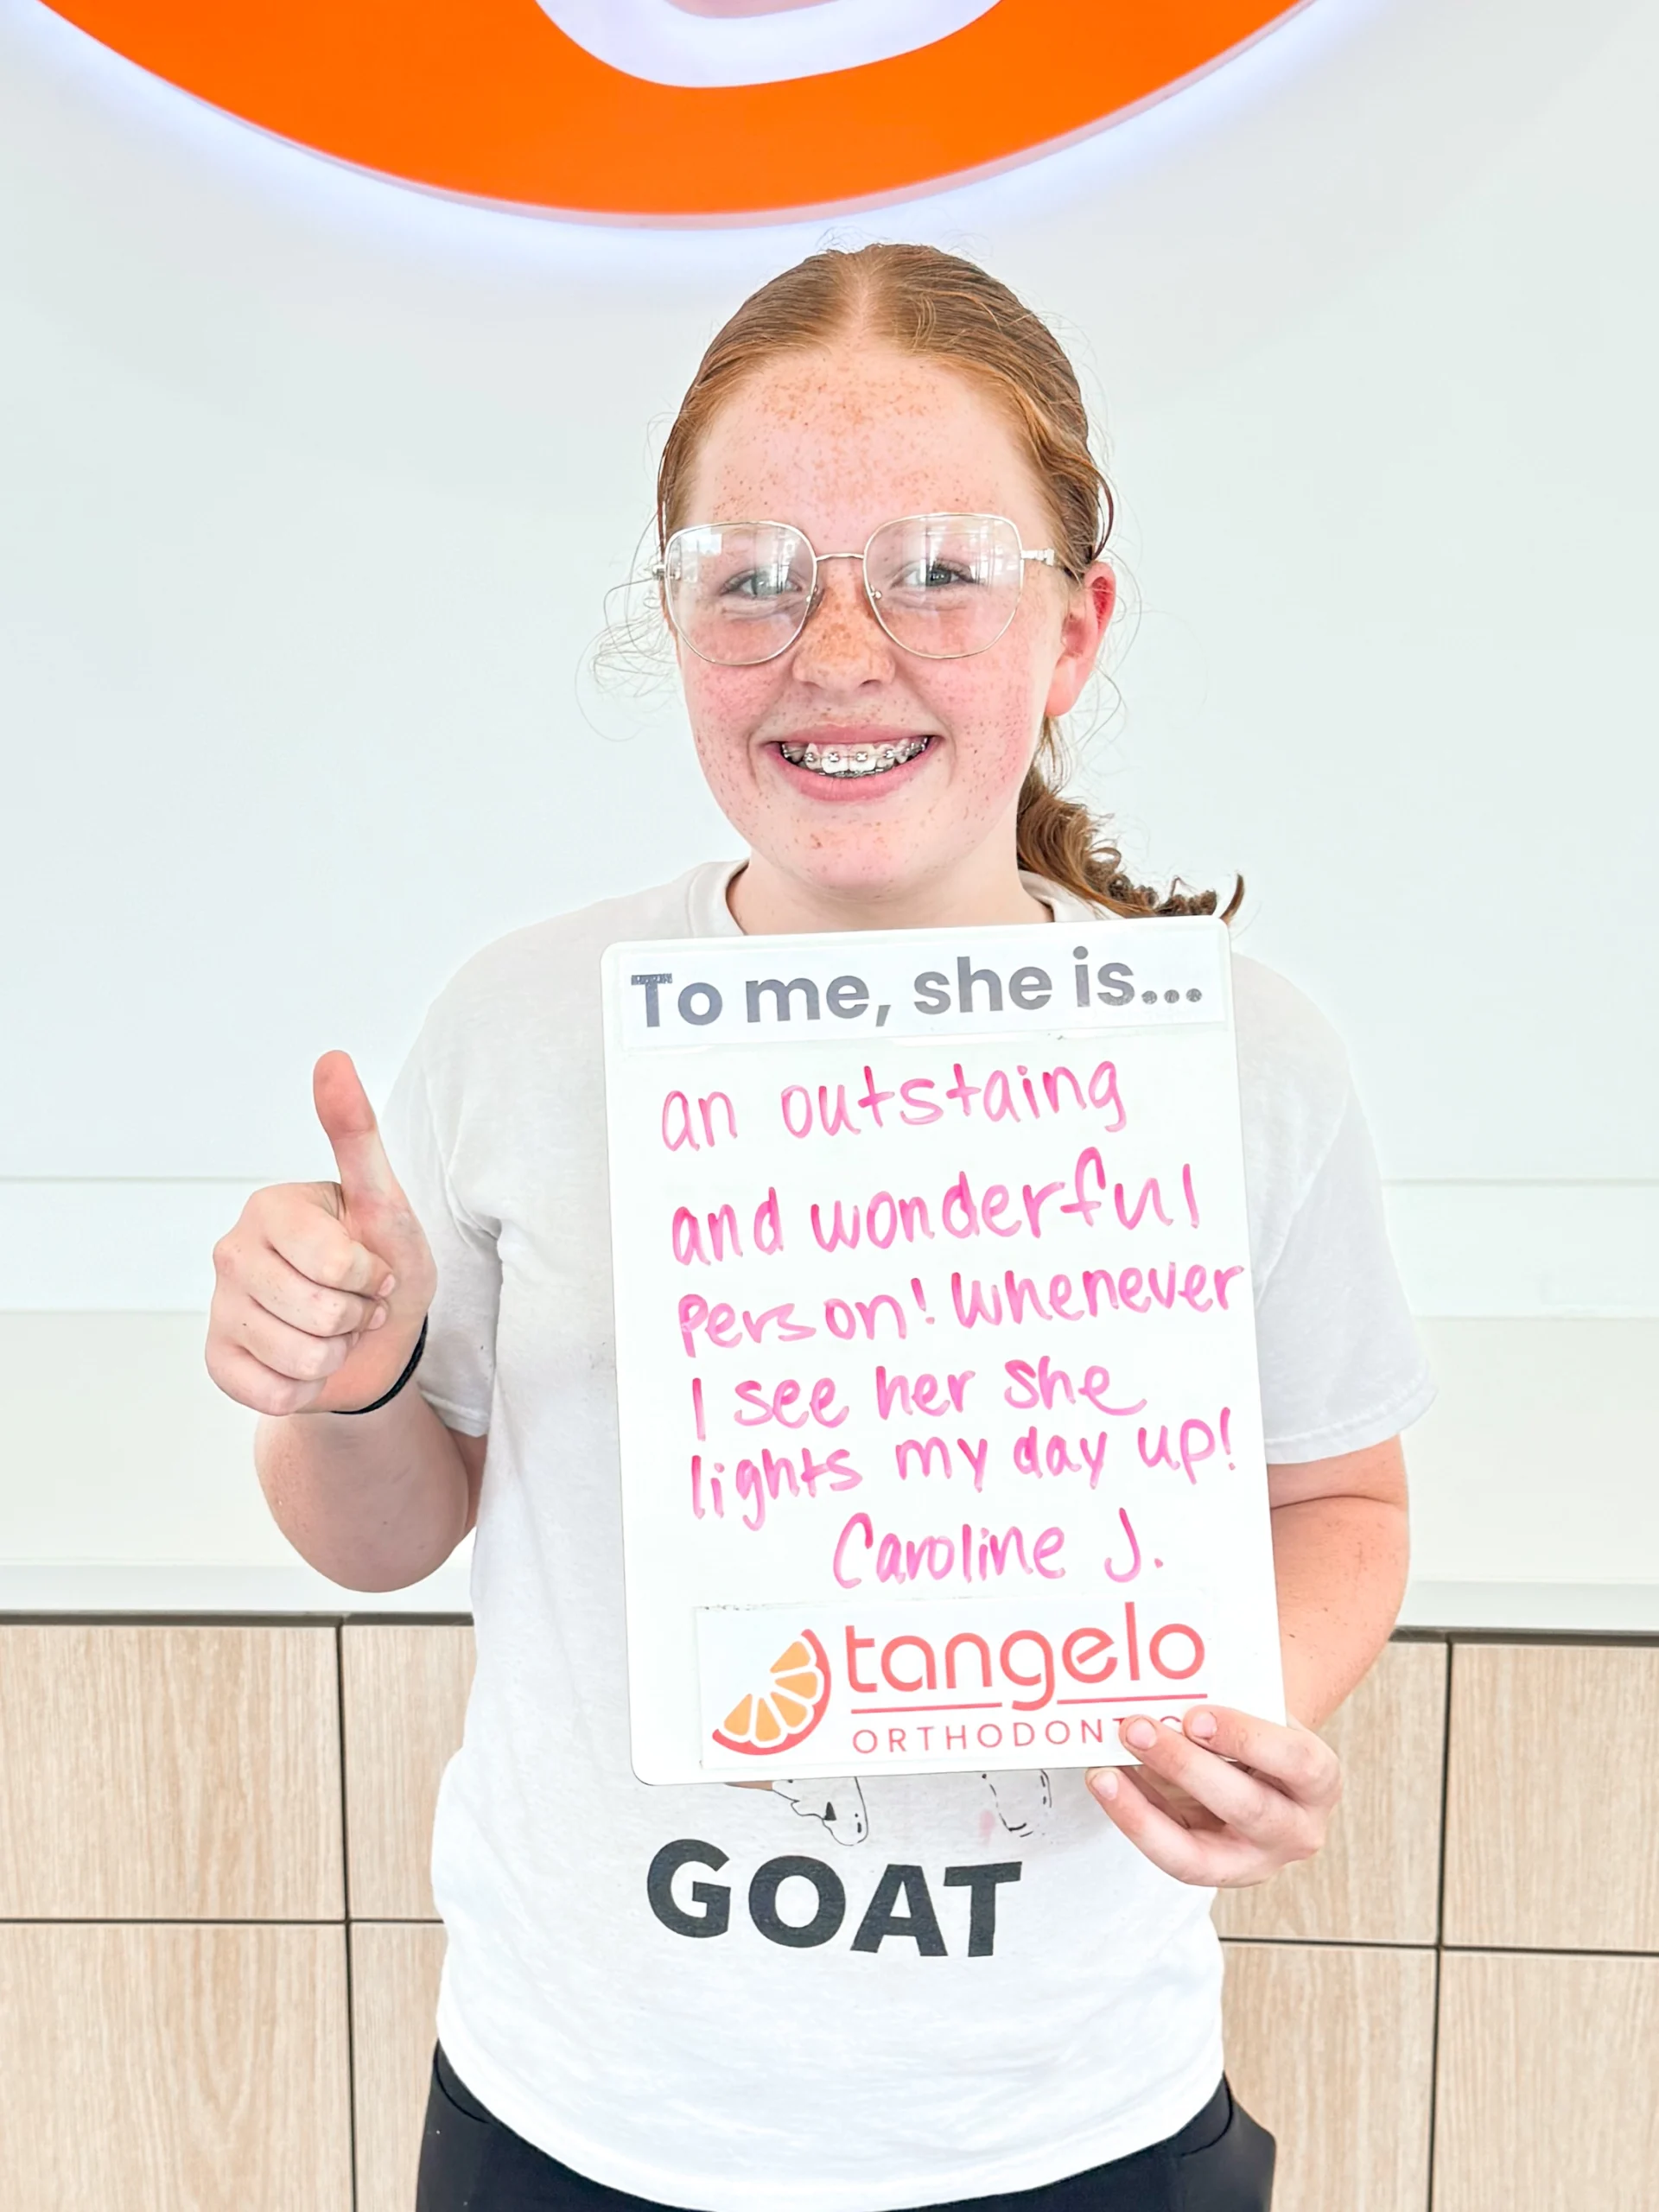 To me, she is...
an outstaing
and wonderful
Person! Whenever
I see her she
lights my day up!
Caroline J.
tangelo
ORTHODONTIC
GOAT